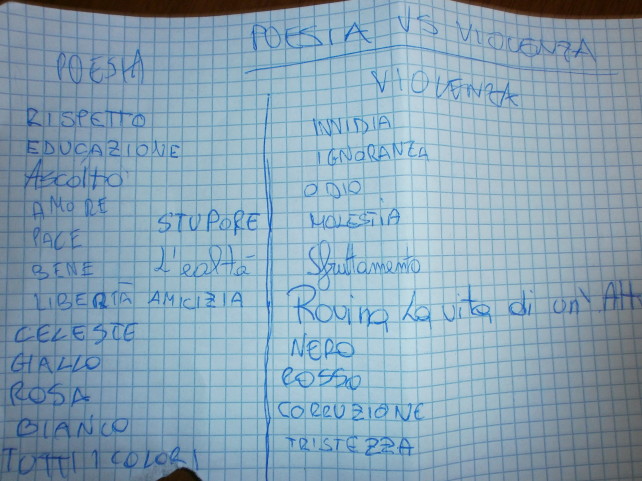 POESIA VS VIOLENZA
POESIA
RISPETTO
EDUCAZIONE
Ascolto
AMORE
STUPORE
PACE
BENE
L'ealtà
LIBERTÀ AMICIZIA
CELESTE
GIALLO
ROSA
BIANCO
TUTTI I COLORI
VIOLENZA
INVIDIA
IGNORANZA
ODIO
MOLESTIA
Sfruttamento
Rovina La vita di un'
NERO
ROSSO
CORRUZIONE
TRISTEZZA